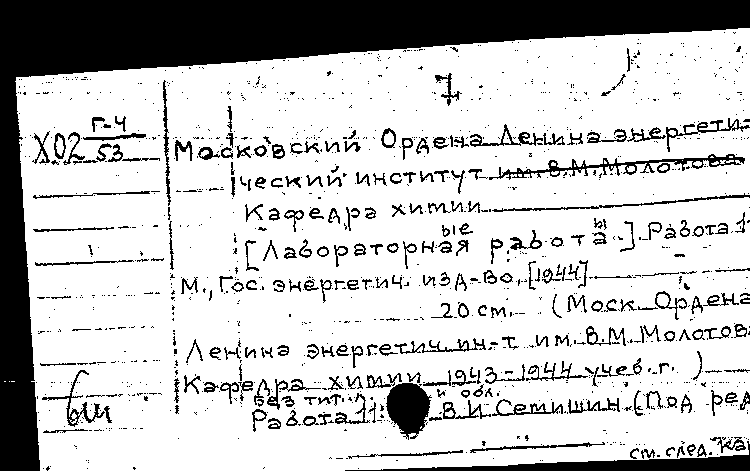 7
Х02 Г-4/53
Московский Ордена Ленина энергети-
ческий институт им. В.М. Молотова
Кафедра химии
ые ы
[Лабораторная работа.]. Работа 11
М., Гос. энергетич. изд-во, [1944]
20 см. (Моск. Ордена
Ленина энергетич. ин-т им. В.М. Молотова
Кафедра химии 1943-1944 учеб. г.)
Без тит. л. и обл.
Работа 11: В.И. Семишин (Под ред
см. след. кар